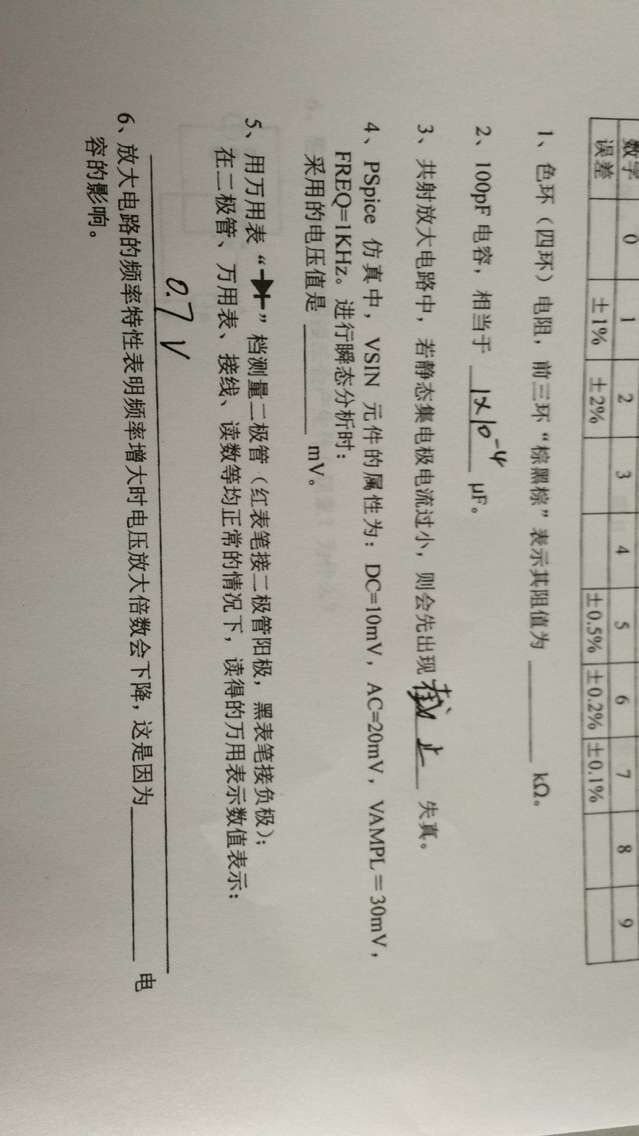 数字 0 1 2 3 4 5 6 7 8 9
误差 ±1% ±2% ±0.5% ±0.2% ±0.1%
1、色环（四环）电阻，前三环“棕黑棕”表示其阻值为 ________ kΩ。
2、100pF 电容，相当于 1×10⁻⁴ μF。
3、共射放大电路中，若静态集电极电流过小，则会先出现 截止 失真。
4、PSpice 仿真中，VSIN 元件的属性为：DC=10mV，AC=20mV，VAMPL＝30mV，
FREQ=1KHz。进行瞬态分析时：
采用的电压值是 ________ mV。
5、用万用表“ ”档测量二极管（红表笔接二极管阳极，黑表笔接负极）；
在二极管、万用表、接线、读数等均正常的情况下，读得的万用表示数值表示：
0.7V
6、放大电路的频率特性表明频率增大时电压放大倍数会下降，这是因为 ________ 电
容的影响。